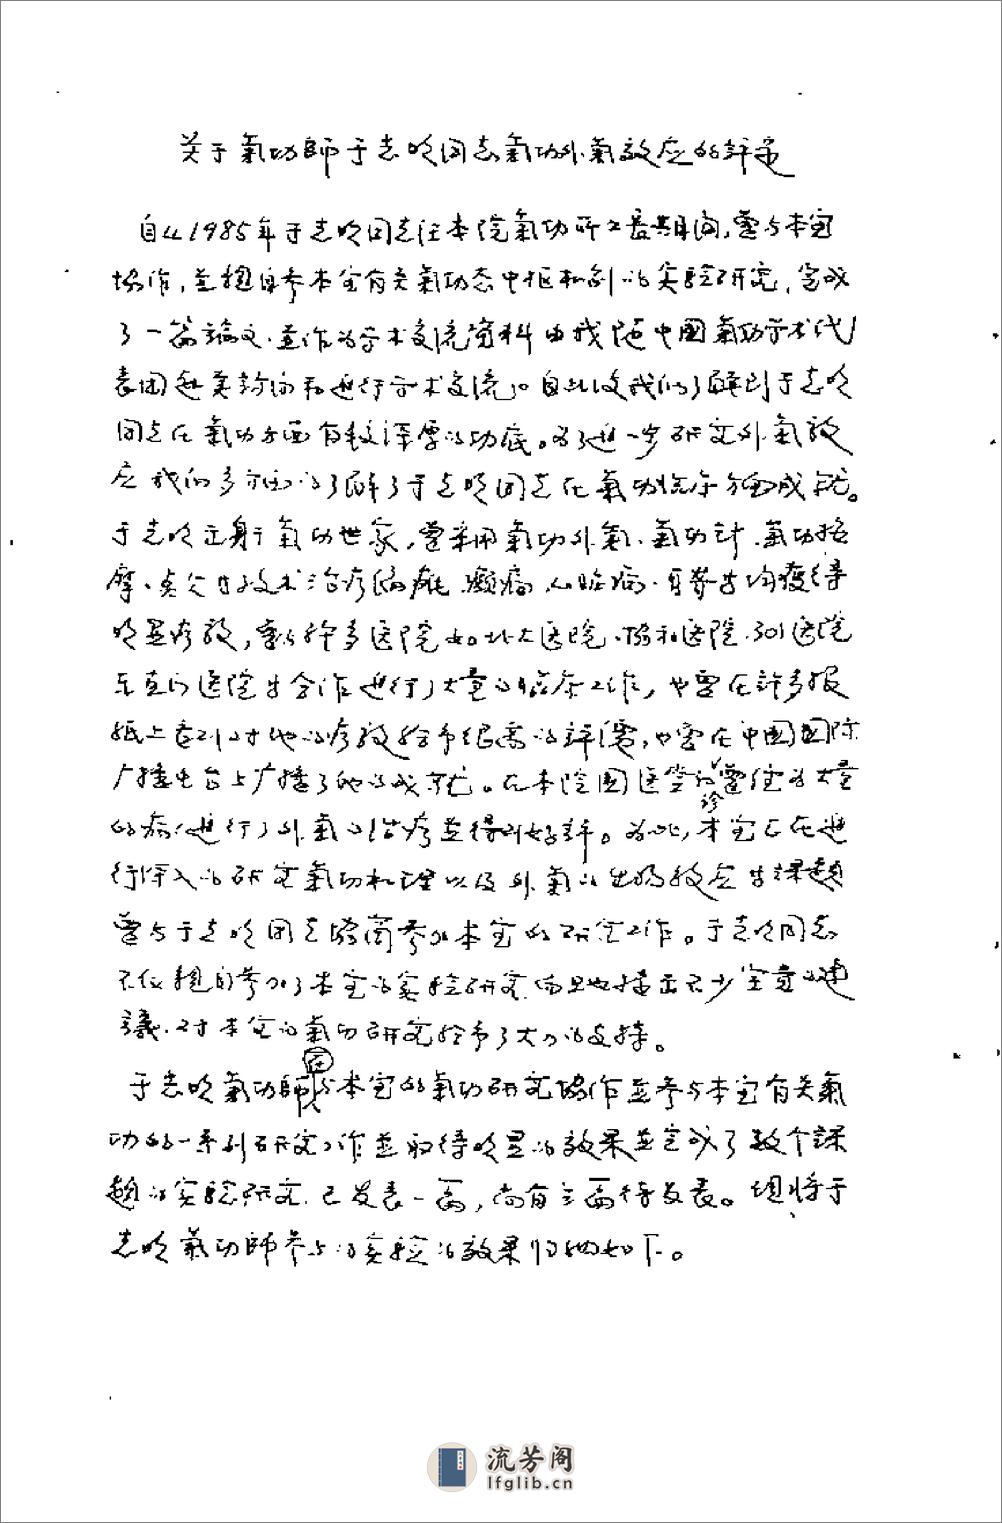 关于氣功師于志明同志氣功外氣效应的評定
自从1985年于志明同志任本院氣功所工 期间,曾与本室
協作,並親自参 本室有关氣功态中枢机制的实验研究,完成
了一篇論文.並作为学术交流資料由我 中國氣功学术代
表团赴美訪问和进行学术交流。自此後我们了解到于志明
同志在氣功方面有較深厚的功底。为了进一步研究外氣效
应我们多方面的了解了于志明同志在氣功临床方面成就。
于志明出身于氣功世家,曾采用氣功外氣、氣功針、氣功按
摩、 等技术治疗偏瘫.癫痫.心脏病. 等均獲得
明显疗效,曾与許多医院如北大医院.協和医院.301医院
东直门医院等合作进行了大量的临床工作,也曾在許多报
紙上看到对他的疗效给予很高的評價,也曾在中國国际
广播电台上广播了他的成就。在本院國医堂门诊曾经为大量
的病人进行了外氣的治疗並得到好評。为此,本室正在进
行深入的研究氣功机理以及外氣的生物效应等課題
曾与于志明同志協商参加本室的研究工作。于志明同志
不仅親自参加了本室的实验研究而且也提出不少宝意的建
議.对本室的氣功研究给予了大力的支持。
于志明氣功師在与本室的氣功研究協作並参与本室有关氣
功的一系列研究工作並取得明显的效果並完成了数个課
題的实验研究.已发表一篇,尚有三篇待发表。現将于
志明氣功師参与的实验的效果归纳如下。
流芳阁
lfglib.cn